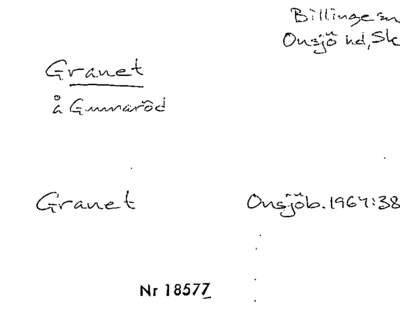 Billinge sn
Onsjö hd, Sk
Granet
å Gunnaröd
Granet Onsjöb. 1967:38
Nr 18577